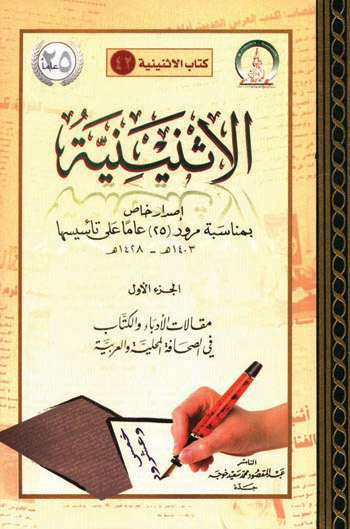 ٢٥ عاماً
كتاب الاثنينية ٤٢
الاثنينية
إصدار خاص
بمناسبة مرور (٢٥) عامًا على تأسيسها
١٤٠٣هـ - ١٤٢٨هـ
الجزء الأول
مقالات الأدباء والكتّاب
في الصحافة المحلية والعربية
الناشر
عبد المقصود محمد سعيد خوجه
جدة